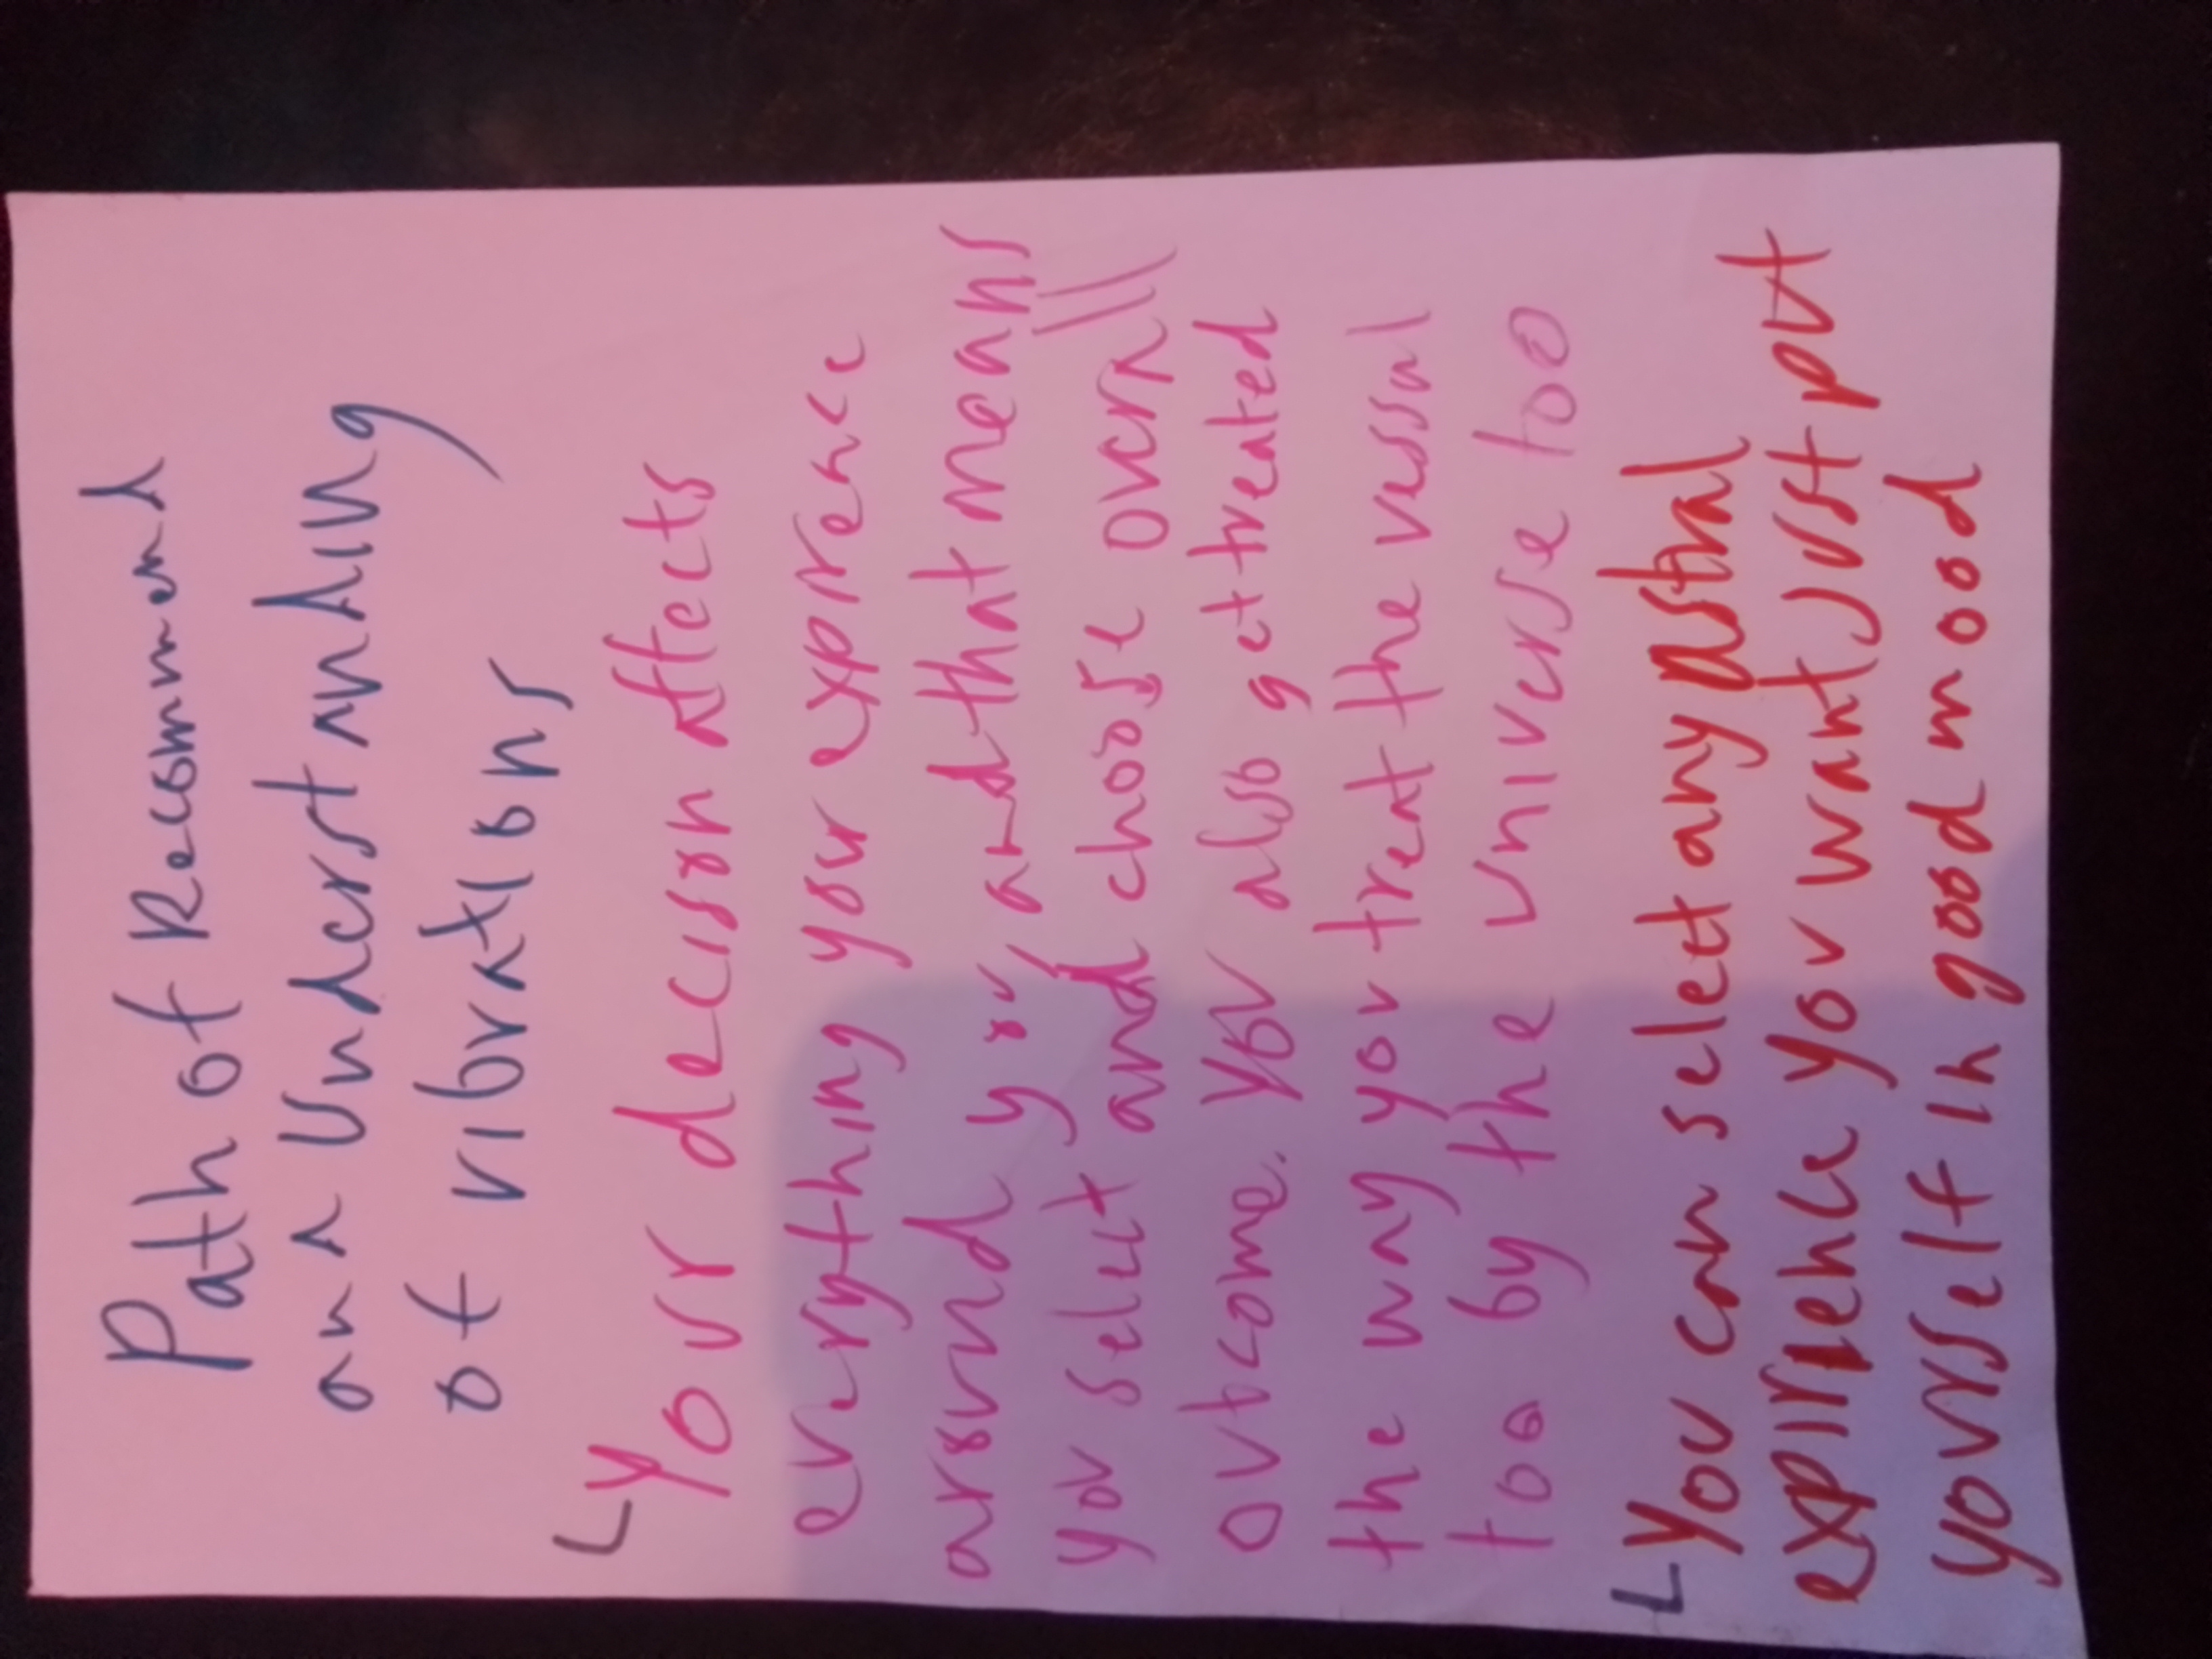 Path of Recommend
and Understanding
of vibrations
Your decision affects
everything your exprence
around your and that means
you select and choose overall
outcome. you also get treated
the way you treat the vessal
too by the universe too
You can select any Astral
expirence you want just put
yourself in good mood